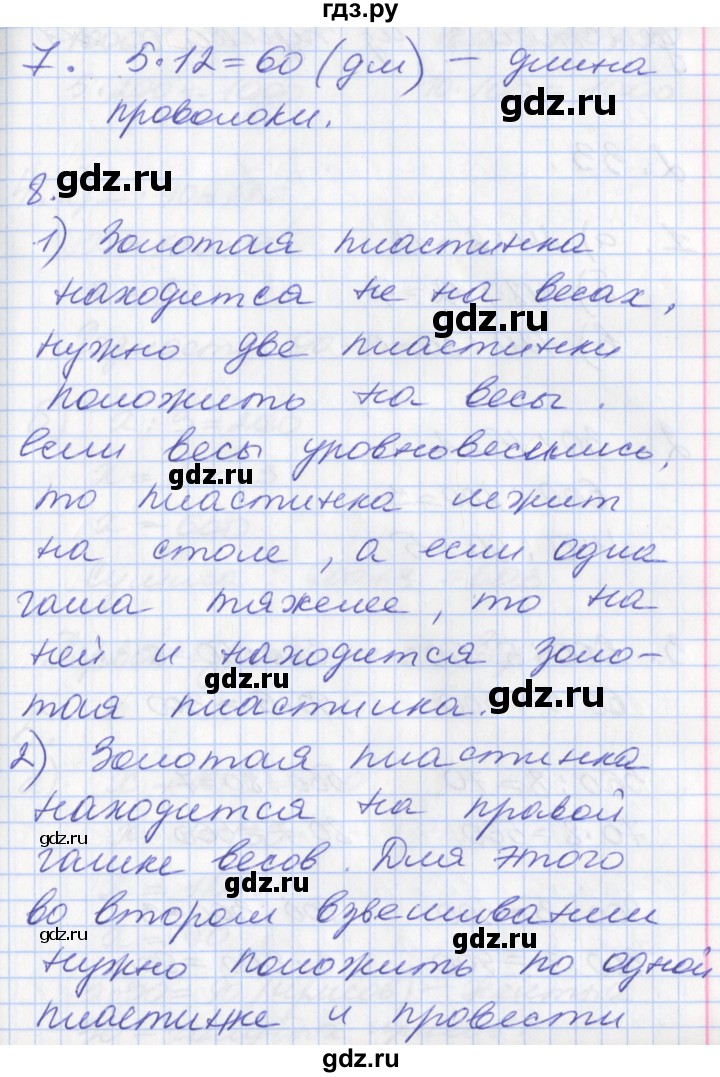 гдз.ру
7. 5·12=60 (дм) – длина
проволоки.
8.
gdz.ru
1) Золотая пластинка
находится не на весах,
gdz.ru
нужно две пластинки
положить на весы.
Если весы уровновесились,
gdz.ru
то пластинка лежит
на столе, а если одна
чаша тяжелее, то на
ней и находится золо-
gdz.ru
gdz.ru
тая пластинка.
2) Золотая пластинка
находится на правой
gdz.ru
чашке весов. Для этого
gdz.ru
во втором взвешивании
gdz.ru
gdz.ru
нужно положить по одной
пластинке и провести
gdz.ru